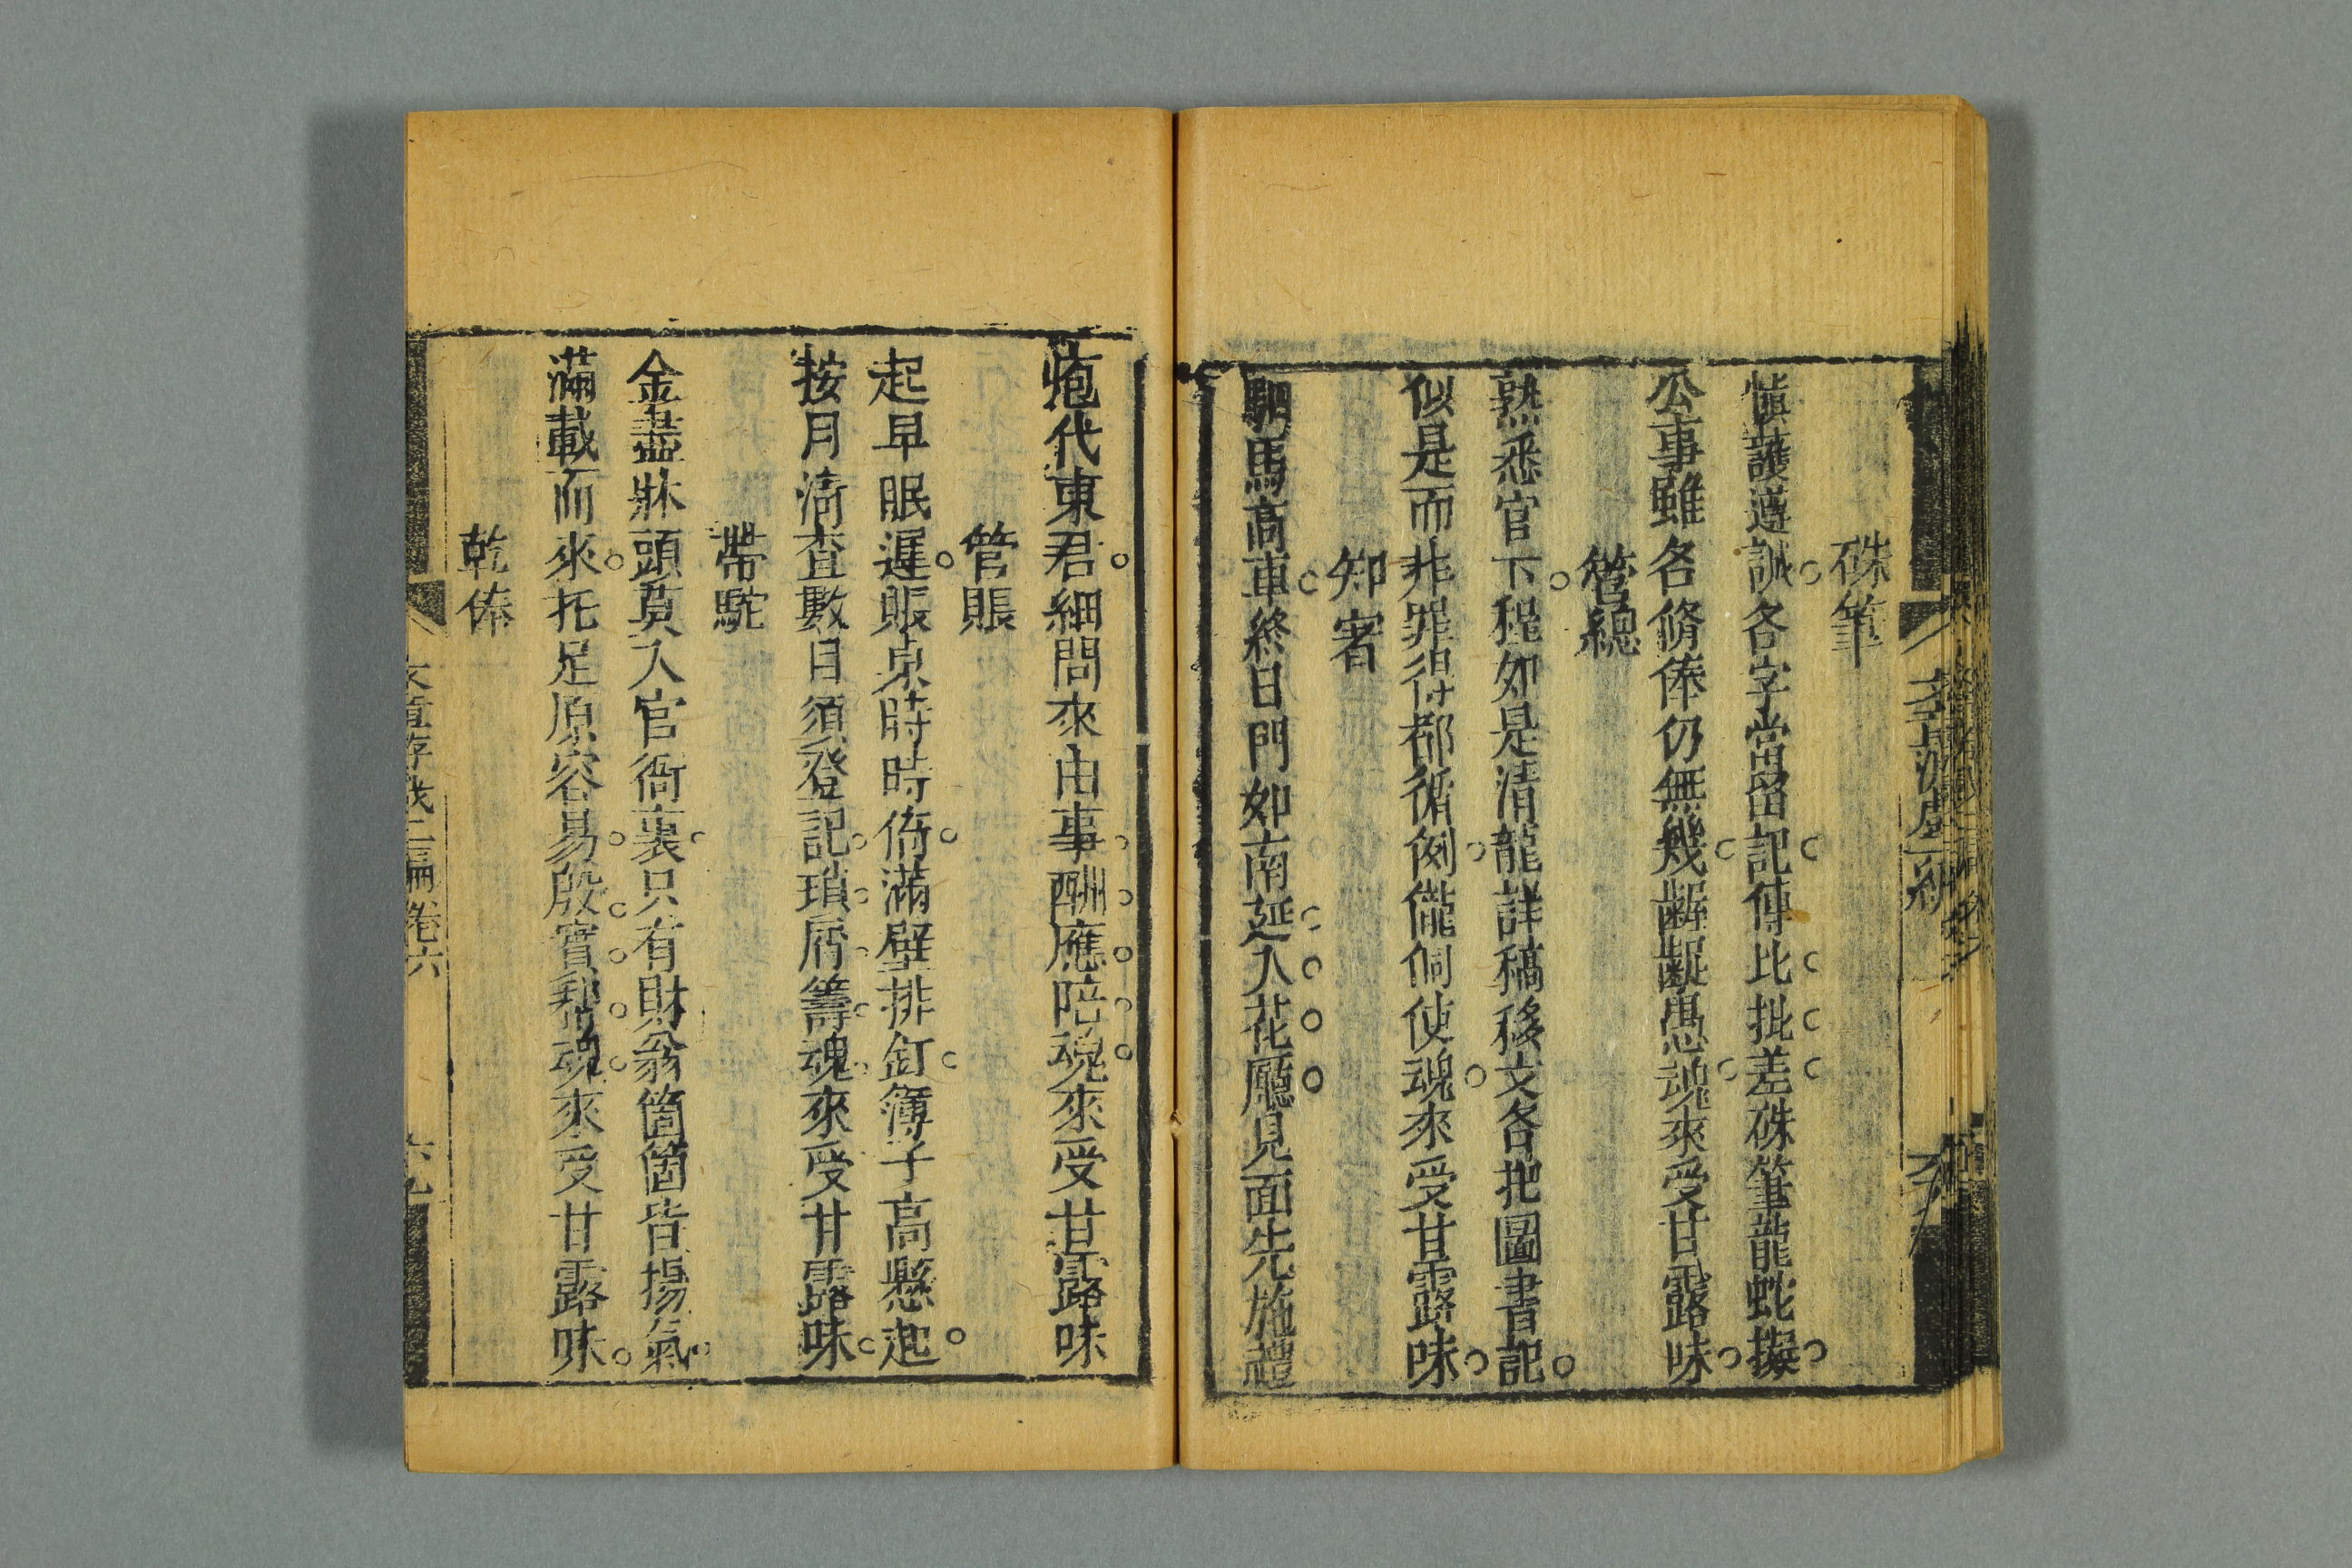 硃筆
慎護遵誡各字當留記傳比批差硃筆龍蛇擬
公事雖各脩俸仍無幾齷齪愚魂來受甘露味
管總
熟悉官下程如是清龍詳稿移文各把圖書記
似是而非罪得都循例儱侗使魂來受甘露味
知客
駟馬高車終日門如南延入花廳見面先施禮
疱代東君細問來由事酬應陪魂來受甘露味
管賬
起早眠遲賬桌時時倚滿壁排釘簿子高懸起
按月淸查數目須登記瑣屑籌魂來受甘露味
帶駝
金盡牀頭負入官衙裏只有財翁箇箇皆揚氣
滿載而來托足原容易殷實利魂來受甘露味
乾俸
二編卷六